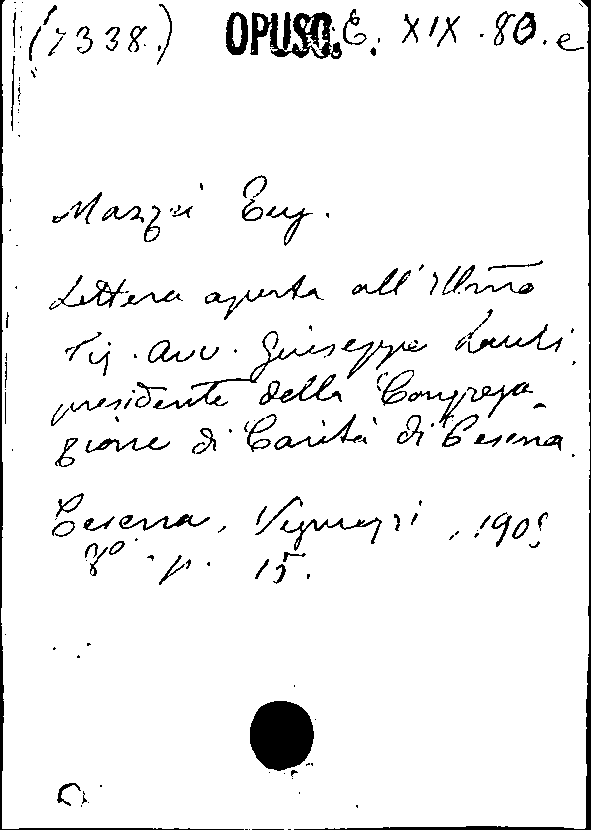 (7338.) OPUSC. E. XIX. 80. e
Mazzei Eug.
Lettera aperta all' Illmo
Sig. Avv. Giuseppe Lauli,
presidente della Congrega-
zione di Carità di Cesena.
Cesena, Vignuzzi, 190
8º. p. 15.